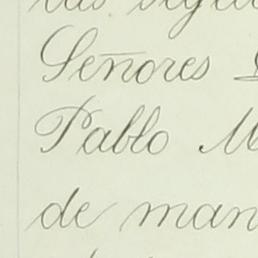 Señores
Pablo M
de man